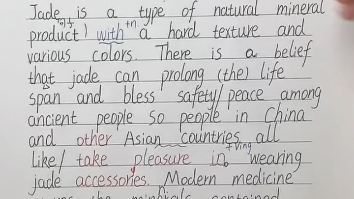 Jade is a type of natural mineral
product) with +n a hard texture and
various colors. There is a belief
that jade can prolong (the) life
span and bless safety/peace among
ancient people so people in China
and other Asian countries all
like/take pleasure in +Ving wearing
jade accessories. Modern medicine
the minerals contained